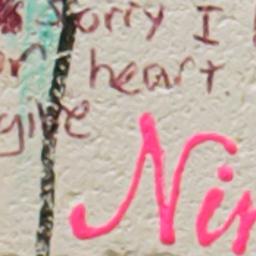 Sorry I
heart.
give
Nin